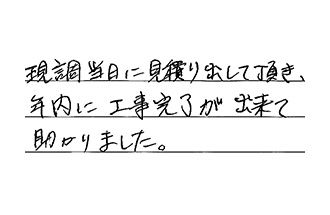 現調当日に見積り出して頂き、
年内に工事完了が出来て
助かりました。